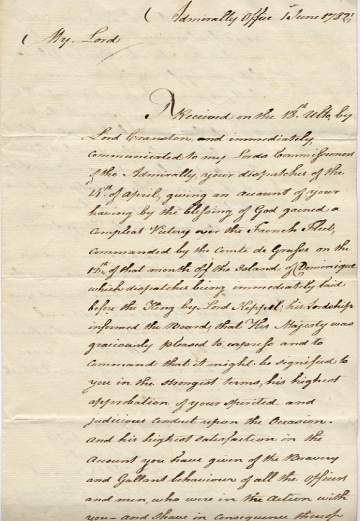 Admiralty Office 1 June 1782
My Lord
I Received on the 18th Ulto, by
Lord Cranston, and immediately
communicated to my Lords Commissioners
of the Admiralty, your dispatches of the
14th of April, giving an account of your
having by the blessing of God gained a
compleat Victory over the French Fleet,
commanded by the Comte de Grasse on the
12th of that month off the Island of Dominique
which dispatches being immediately laid
before the King by Lord Keppel, his Lordship
informed the Board, that His Majesty was
graciously pleased to express and to
command that it might be signified to
you in the strongest terms, his highest
approbation of your spirited and
judicious conduct upon the Occasion.
And his highest satisfaction in the
Account you have given of the Bravery
and Gallant behaviour of all the Officers
and men, who were in the Action with
you - and I have in consequence thereof